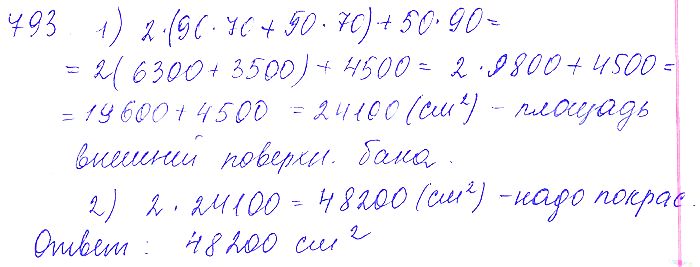 793 1) 2·(90·70+50·70)+50·90=
= 2(6300+3500)+4500= 2·9800+4500=
= 19600+4500 = 24100 (см²) – площадь
внешней поверхн. бака.
2) 2·24100=48200 (см²) – надо покрас.
Ответ: 48200 см²